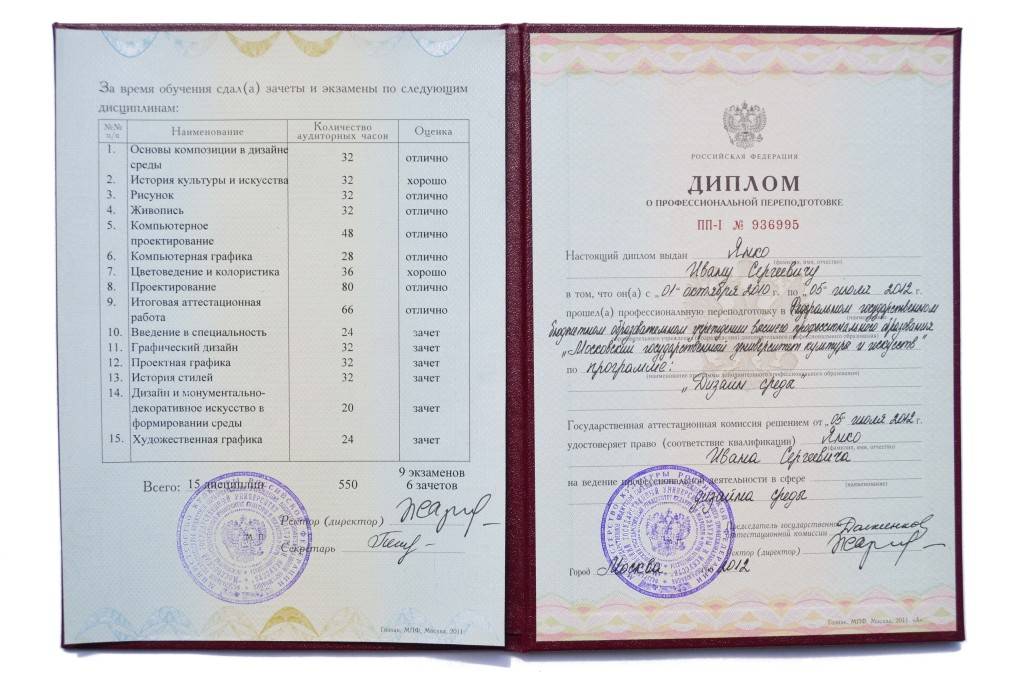 За время обучения сдал(а) зачеты и экзамены по следующим
дисциплинам:
№№ п/п Наименование Количество аудиторных часов Оценка
1. Основы композиции в дизайне среды 32 отлично
2. История культуры и искусства 32 хорошо
3. Рисунок 32 отлично
4. Живопись 32 отлично
5. Компьютерное проектирование 48 отлично
6. Компьютерная графика 28 отлично
7. Цветоведение и колористика 36 хорошо
8. Проектирование 80 отлично
9. Итоговая аттестационная работа 66 отлично
10. Введение в специальность 24 зачет
11. Графический дизайн 32 зачет
12. Проектная графика 32 зачет
13. История стилей 32 зачет
14. Дизайн и монументально-декоративное искусство в формировании среды 20 зачет
15. Художественная графика 24 зачет
Всего: 15 дисциплин 550 9 экзаменов
6 зачетов
Ректор (директор)
Секретарь
Гознак, МПФ, Москва, 2011
РОССИЙСКАЯ ФЕДЕРАЦИЯ
ДИПЛОМ
О ПРОФЕССИОНАЛЬНОЙ ПЕРЕПОДГОТОВКЕ
ПП-I № 936995
Настоящий диплом выдан Янко
(фамилия, имя, отчество)
Ивану Сергеевичу
в том, что он(а) с „01“ октября 2010 г. по „05“ июля 2012 г.
прошел(а) профессиональную переподготовку в Федеральном государственном
бюджетном образовательном учреждении высшего профессионального образования
„Московский государственный университет культуры и искусств“
по программе:
(наименование программы дополнительного профессионального образования)
„Дизайн среды“
Государственная аттестационная комиссия решением от „05“ июля 2012 г.
удостоверяет право (соответствие квалификации) Янко
(фамилия, имя, отчество)
Ивана Сергеевича
на ведение профессиональной деятельности в сфере
(наименование)
дизайна среды
Председатель государственной
аттестационной комиссии
Ректор (директор)
Город Москва 2012
Гознак, МПФ, Москва, 2011